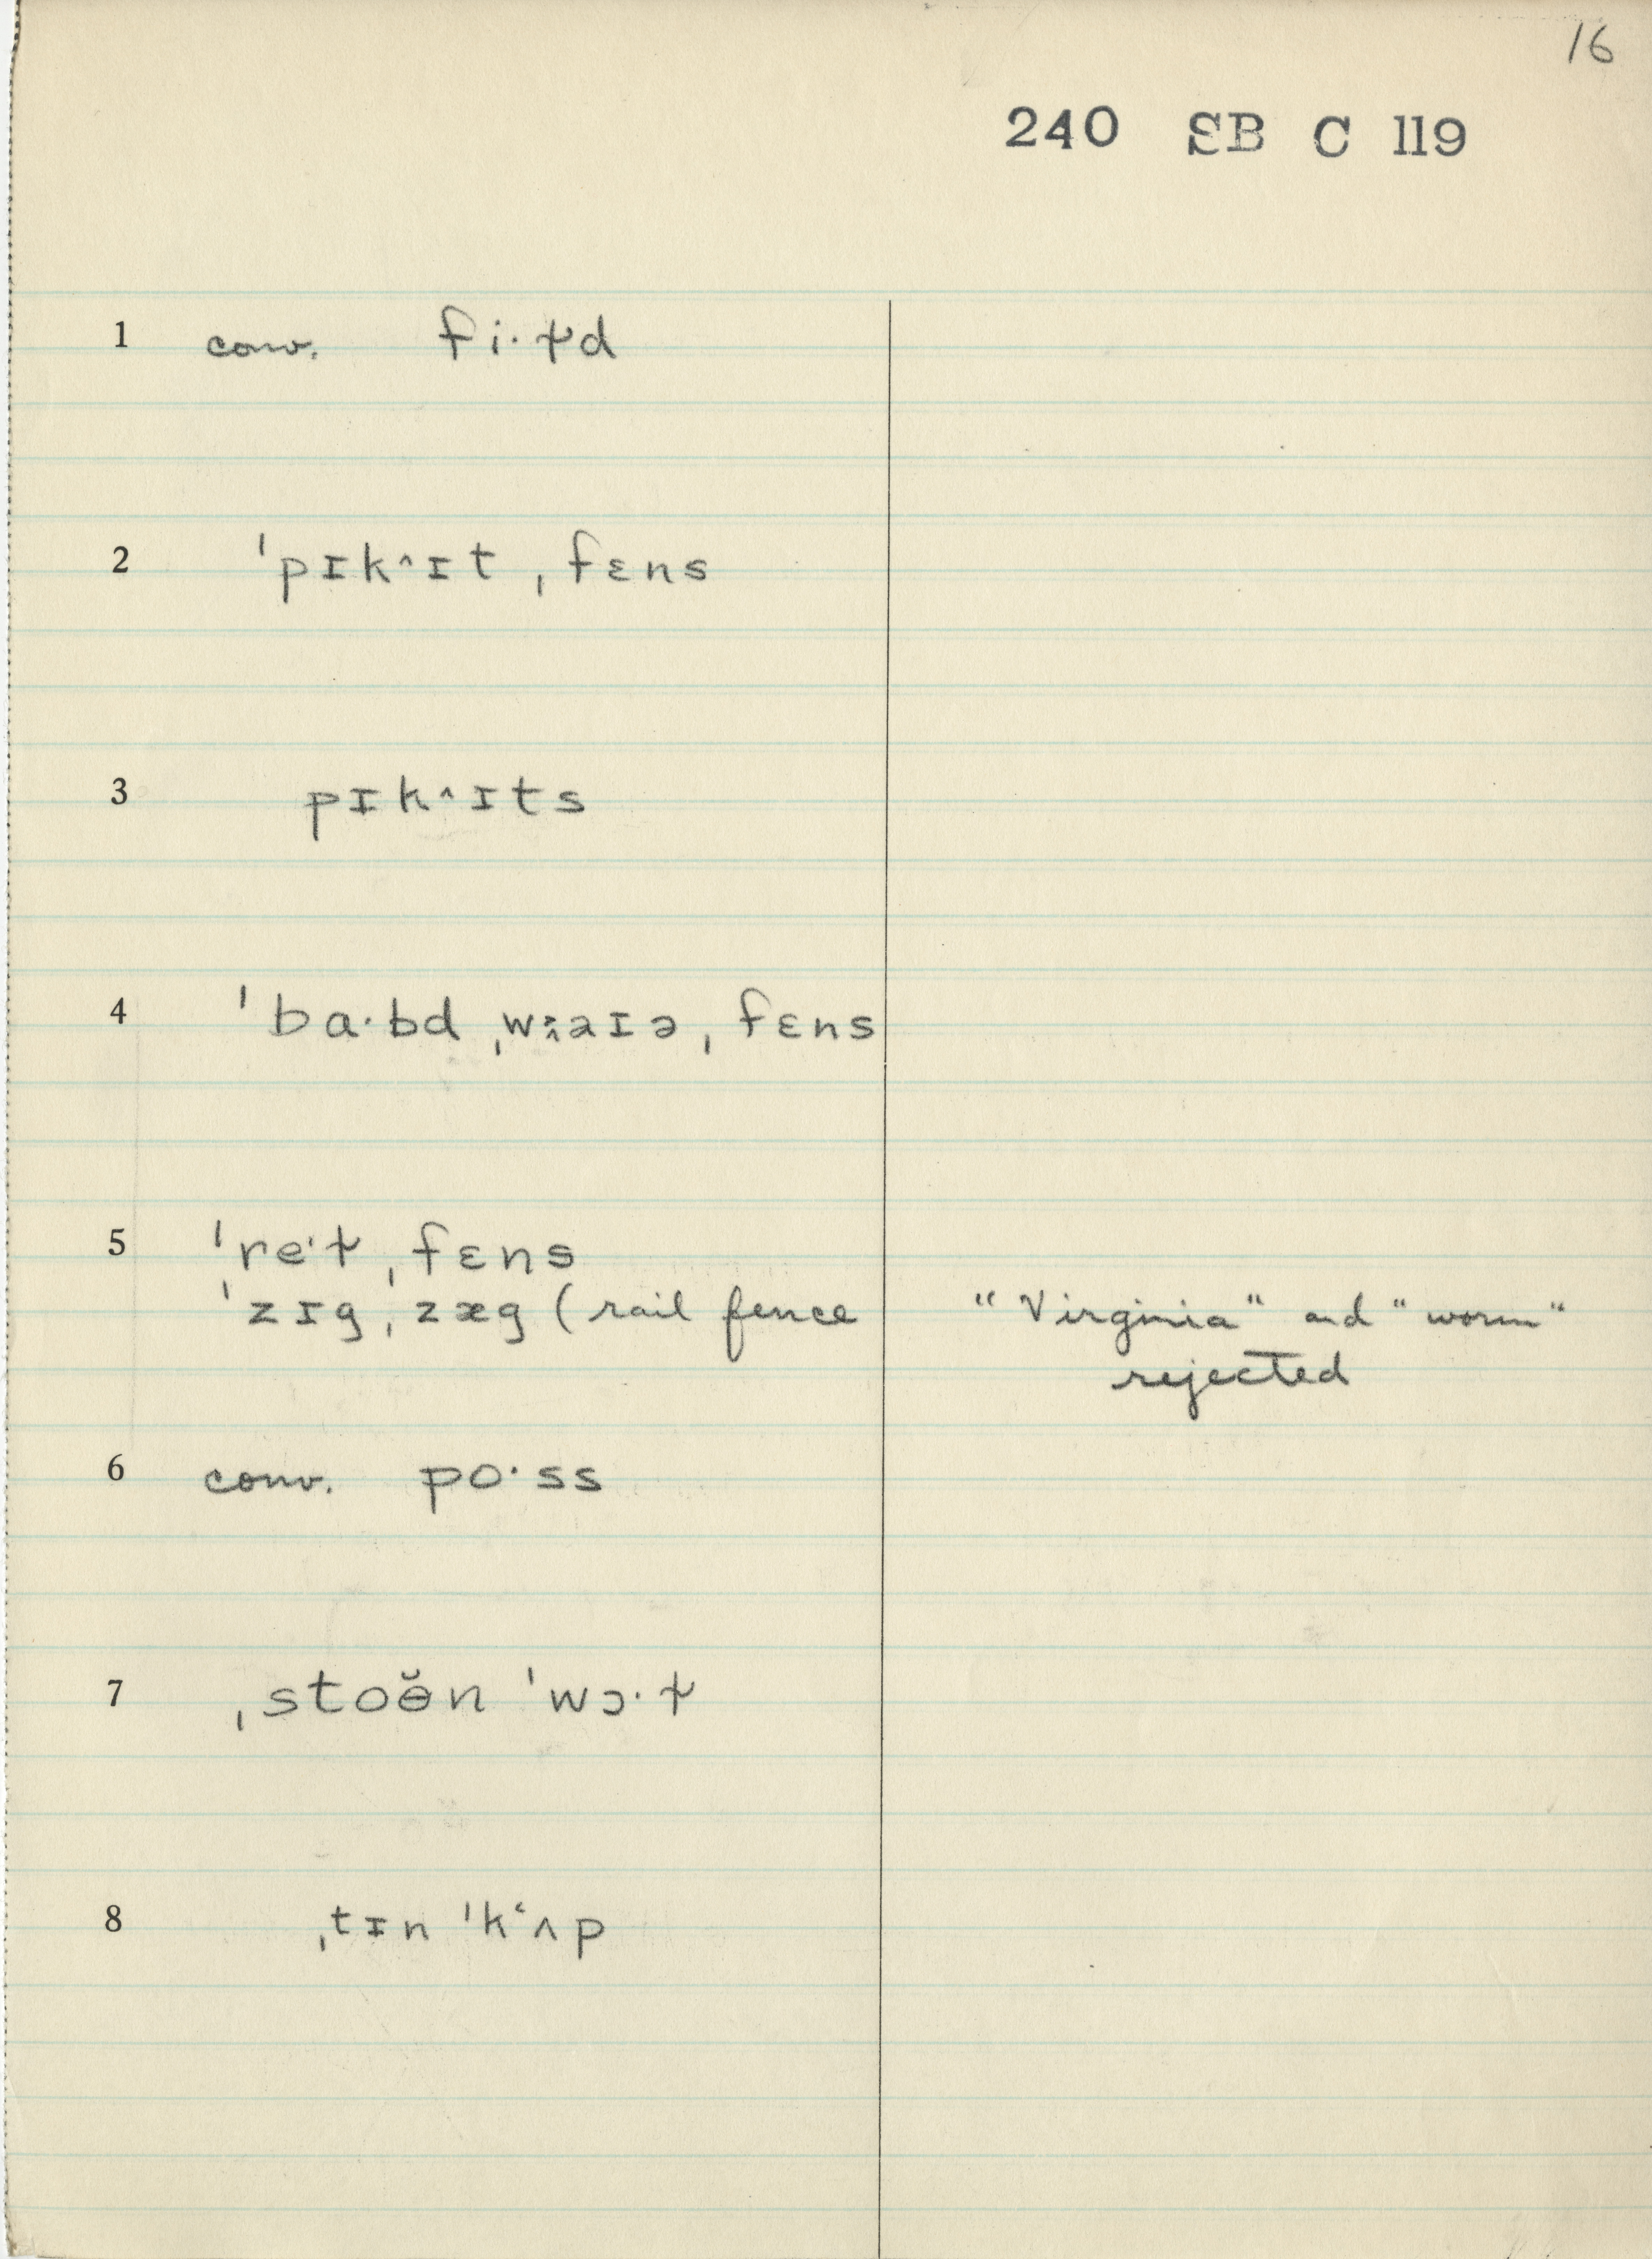 16
240 SB C 119
1 conv. fi·ɫd
2 ˈpɪk^ɪt ˌfɛns
3 pɪk^ɪts
4 ˈba·bd ˌwaɪə ˌfɛns
5 ˈre·ɫ ˌfɛns
ˈzɪgˌzæg (rail fence "Virginia" and "worm"
rejected
6 conv. po·ss
7 ˌstoɵ̆n ˈwɔ·ɫ
8 ˌtɪn ˈkʻʌp